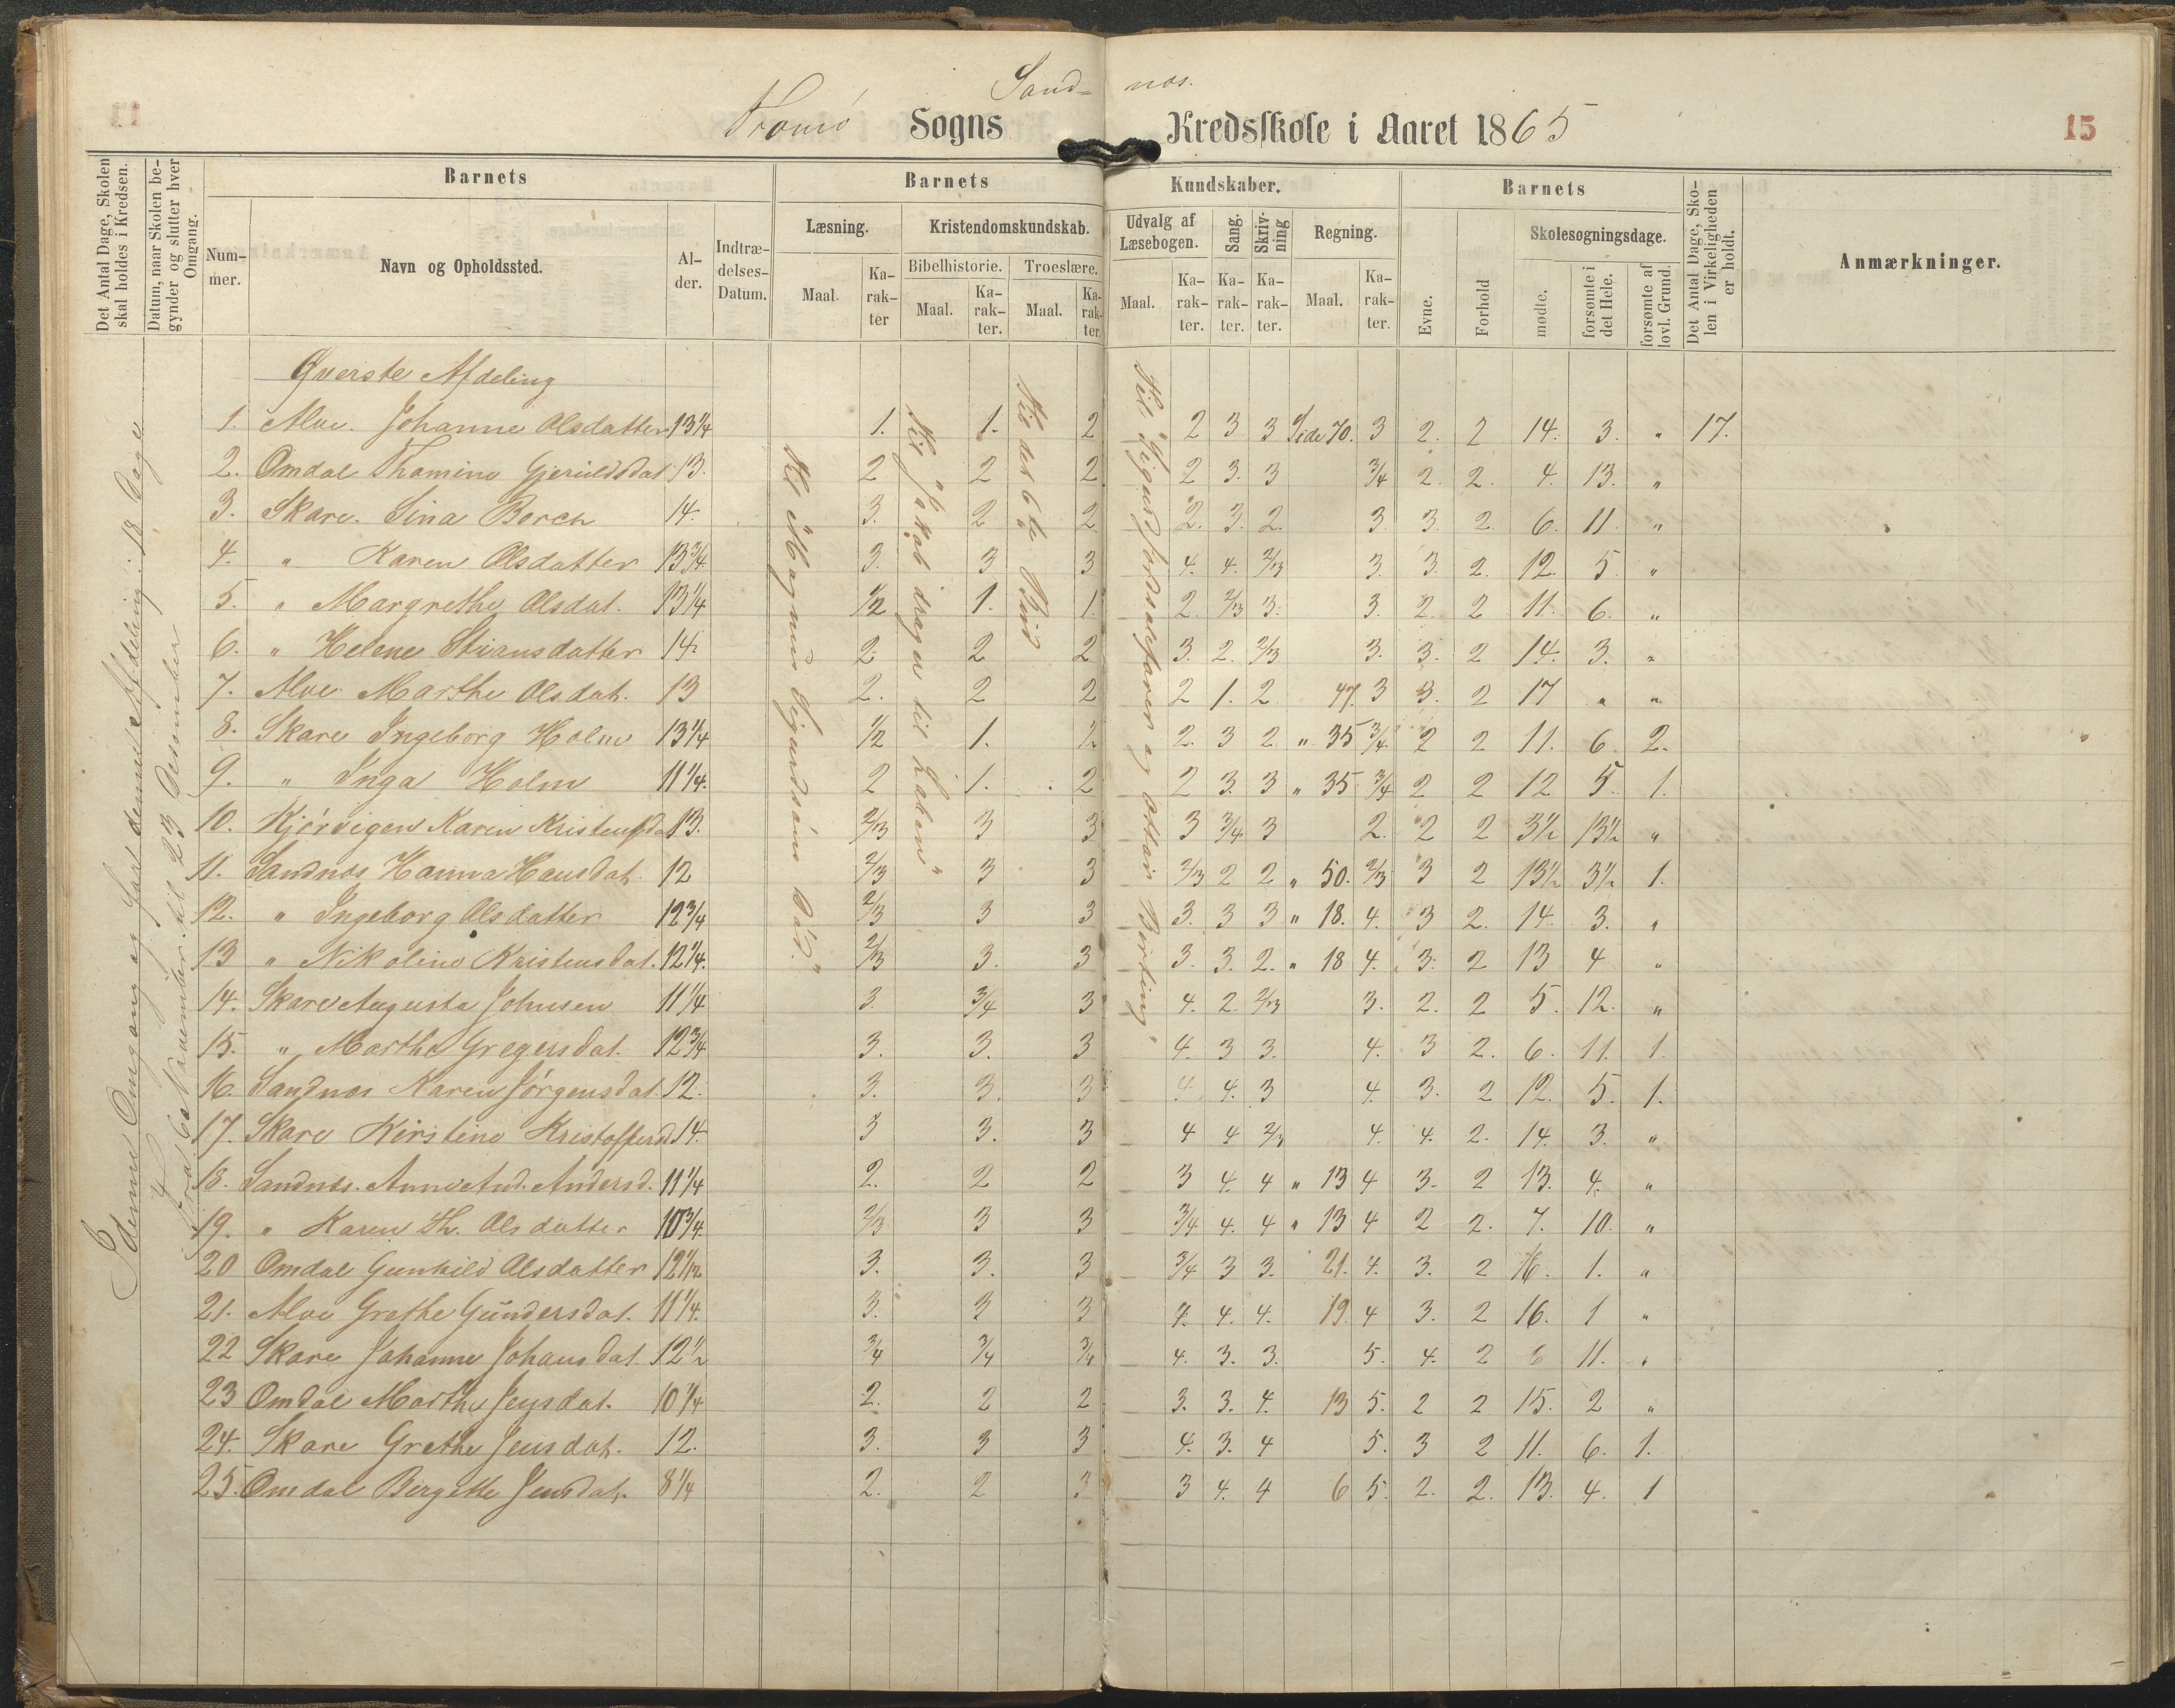 Sand- næs.
Tromö Sogns Kredsskole i Aaret 1865
15
Det Antal Dage, Skolen skal holdes i Kredsen.
Datum, naar Skolen begynder og slutter hver Omgang.
Barnets
Nummer.
Navn og Opholdssted.
Alder.
Indtrædelses-Datum.
Barnets Kundskaber.
Læsning.
Maal. Karakter
Kristendomskundskab.
Bibelhistorie. Troeslære.
Maal. Karakter. Maal. Karakter.
Udvalg af Læsebogen.
Maal. Karakter.
Sang. Karakter.
Skrivning Karakter.
Regning.
Maal. Karakter.
Barnets
Evne. Forhold
Skolesøgningsdage.
mødte. forsømte i det Hele. forsømte af lovl. Grund.
Det Antal Dage, Skolen i Virkeligheden er holdt.
Anmærkninger.
I denne Omgang og for denne Afdeling: 18 Dage
Fra 6te November til 23 December
Øverste Afdeling
Til "Jakob drager til Laban"
Til det 6te Bud
1. Alve. Johanne Olsdatter 13¼ 1. 1. 2 2 3 3 Side 70. 3 2. 2 14. 3. " 17.
2. Omdal Thomine Gjeruldsdat 13. 2 2 2 2 3. 3 3/4 2. 2. 4. 13. "
3. Skare. Sina Borch 14. 3. 2 2 2. 3. 2. 3. 3. 2. 6. 11. "
4. " Karen Olsdatter 13¾ 3. 3 3 4. 4. 2/3 3. 3. 2. 12. 5. "
5. " Margrethe Olsdat. 13¼ ½ 1. 1. 2. 2/3 3. 3. 2. 2 11. 6. "
6. " Helene Stiansdatter 14. 2. 2 2 3. 2. 2/3 3. 3. 2 14. 3. "
7. Alve Marthe Olsdat. 13 2. 2 2 2 1. 2 47. 3 3. 2 17 " "
8. Skare Ingeborg Holm 13¼ ½ 1. 2 2. 3 2 " 35 3/4. 2 2 11. 6 2.
9. " Inga Holm 11¼. 2 1. 2 2 3. 3 " 35 3/4 2 2 12 5. 1.
10. Kjörvigen Karen Kristensda 13. 2/3 3 3 3 3/4 3 2. 2 2 3½ 13½ "
11. Sandnæs Hanna Hansdat. 12 2/3 3 3 2/3 2 2 " 50. 2/3 3 2 13½ 3½ 1.
12. " Ingeborg Olsdatter 12¾ 2/3 3 3 3. 3 3 " 18. 4. 3 2. 14. 3. "
13 " Nikoline Kristensdat. 12¼. 2/3 3. 3 3. 3. 2. " 18 4. 3. 2 13 4 "
14. Skare Augusta Johnsen 11¼ 3. 3/4 3 4. 2. 2/3 3. 2. 2 5. 12. "
15. " Marthe Gregersdat. 12¾ 3. 3. 3 4. 3 3. 4. 3 2. 6. 11. 1.
16. Sandnæs Karen Jörgensdat. 12. 3. 3. 3 4 4. 3 4. 3. 2 12. 5. 1.
17. Skare Kirstine Kristoffersd 14. 3 3. 3 4 4 2/3 4. 4. 2. 14. 3. "
18. Sandnæs. Anne And. Andersd. 11¼ 2. 2 2 3 4. 4 " 13 4 3. 2 13. 4. "
19. " Karen Th. Olsdatter 10¾. 2/3 3 3 3/4 4. 4 " 13 4 2 2. 7. 10. "
20 Omdal Gunhild Olsdatter 12½ 3. 3. 3 3/4 3 3. 21. 4. 3. 2 16. 1. "
21. Alve Grethe Gundersdat. 11¼. 3. 3 3 4. 4. 4. 19. 4 3. 2 16. 1 "
22 Skare Johanne Johansdat. 12½ 3/4 3/4 3/4 4. 3. 3. 5. 4. 2 6 11. "
23 Omdal Marthe Jensdat. 10¼ 2. 2 2 3. 3. 4. 13 5. 2 2 15. 2 "
24. Skare Grethe Jensdat. 12. 3. 3 3 4. 3. 4 5. 3 2 11. 6. 1.
25. Omdal Bergette Jensdat. 8¼ 2. 2 3 3 4. 4 6 5. 2. 2. 13. 4. 1